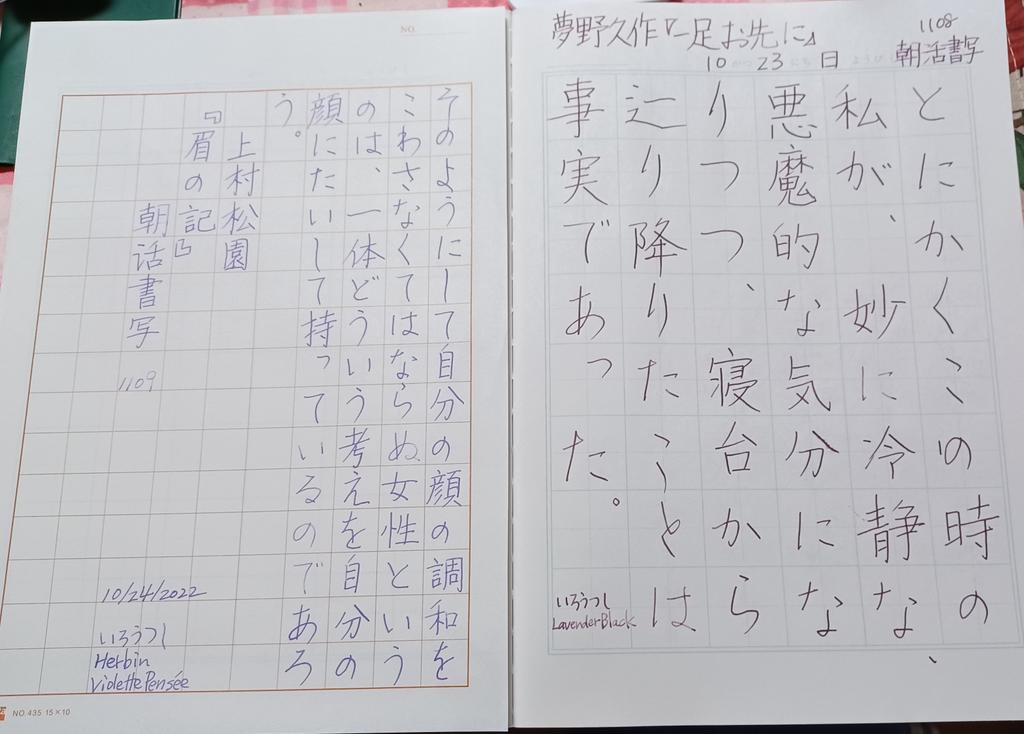 NO.
そのようにして自分の顔の調和を
こわさなくてはならぬ女性という
のは、一体どういう考えを自分の
顔にたいして持っているのであろ
う。
上村松園
『眉の記』
朝話書写
1109
10/24/2022
いろうつし
Herbin
Violette Pensée
NO. 435 15×10
夢野久作『一足お先に』
1108
朝活書写
10 がつ 23 にち 日 ようび
とにかくこの時の
私が、妙に冷静な、
悪魔的な気分にな
りつつ、寝台から
辷り降りたことは
事実であった。
いろうつし
Lavender Black